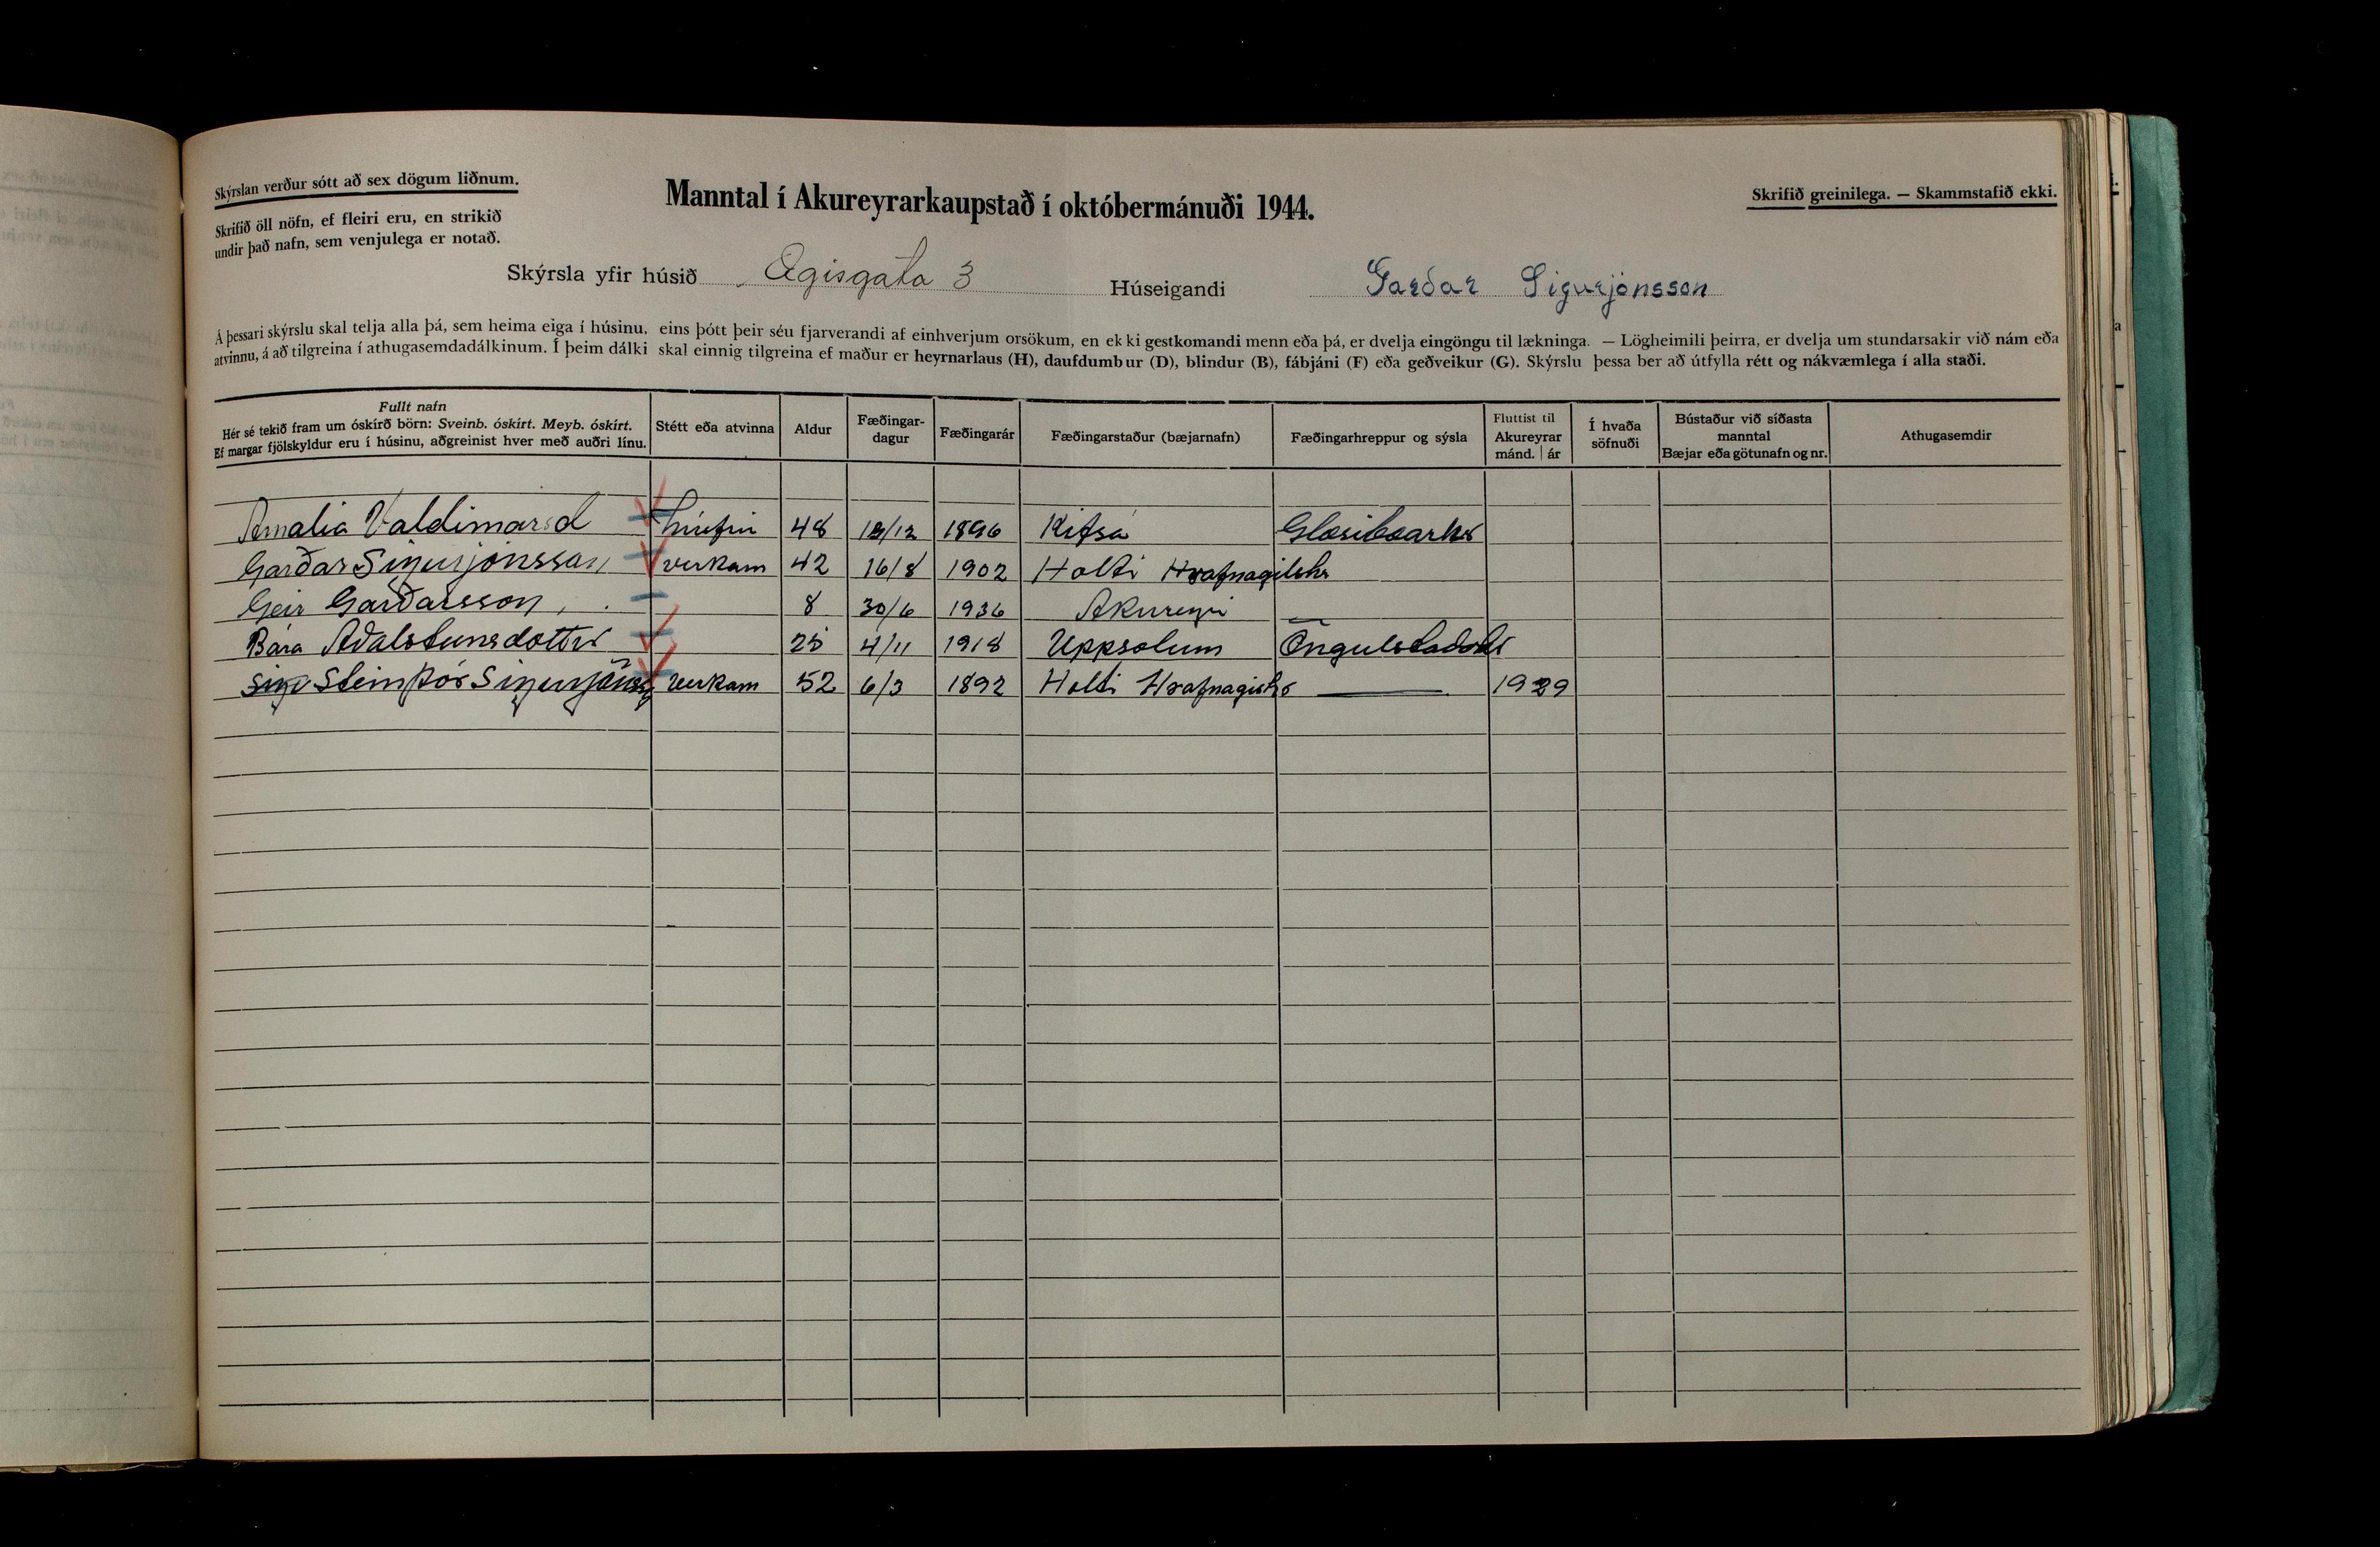 Skýrslan verður sótt að sex dögum liðnum.
Skrifið öll nöfn, ef fleiri eru, en strikið
undir það nafn, sem venjulega er notað.
Manntal í Akureyrarkaupstað í októbermánuði 1944.
Skrifið greinilega. — Skammstafið ekki.
Skýrsla yfir húsið Ægisgata 3 Húseigandi Garðar Sigurjónsson
Á þessari skýrslu skal telja alla þá, sem heima eiga í húsinu, eins þótt þeir séu fjarverandi af einhverjum orsökum, en ekki gestkomandi menn eða þá, er dvelja eingöngu til lækninga. — Lögheimili þeirra, er dvelja um stundarsakir við nám eða
atvinnu, á að tilgreina í athugasemdadálkinum. Í þeim dálki skal einnig tilgreina ef maður er heyrnarlaus (H), daufdumbur (D), blindur (B), fábjáni (F) eða geðveikur (G). Skýrslu þessa ber að útfylla rétt og nákvæmlega í alla staði.
Fullt nafn
Hér sé tekið fram um óskírð börn: Sveinb. óskírt. Meyb. óskírt.
Ef margar fjölskyldur eru í húsinu, aðgreinist hver með auðri línu.
Stétt eða atvinna
Aldur
Fæðingar-
dagur
Fæðingarár
Fæðingarstaður (bæjarnafn)
Fæðingarhreppur og sýsla
Fluttist til
Akureyrar
mánd. | ár
Í hvaða
söfnuði
Bústaður við síðasta
manntal
Bæjar eða götunafn og nr.
Athugasemdir
Amalia Valdimarsd 48 /12 1896 Kifsá Glæsibæarhr
Garðar Sigurjónsson verkam 42 16/8 1902 Holti Hrafnagilshr
Geir Garðarsson 8 30/6 1936 Akureyri —
Bára Aðalsteinsdottir 25 4/11 1918 Uppsolum Öngulstaðahr
Steinþór Sigurjónss verkam 52 6/3 1892 Holti Hrafnagishr — 1929